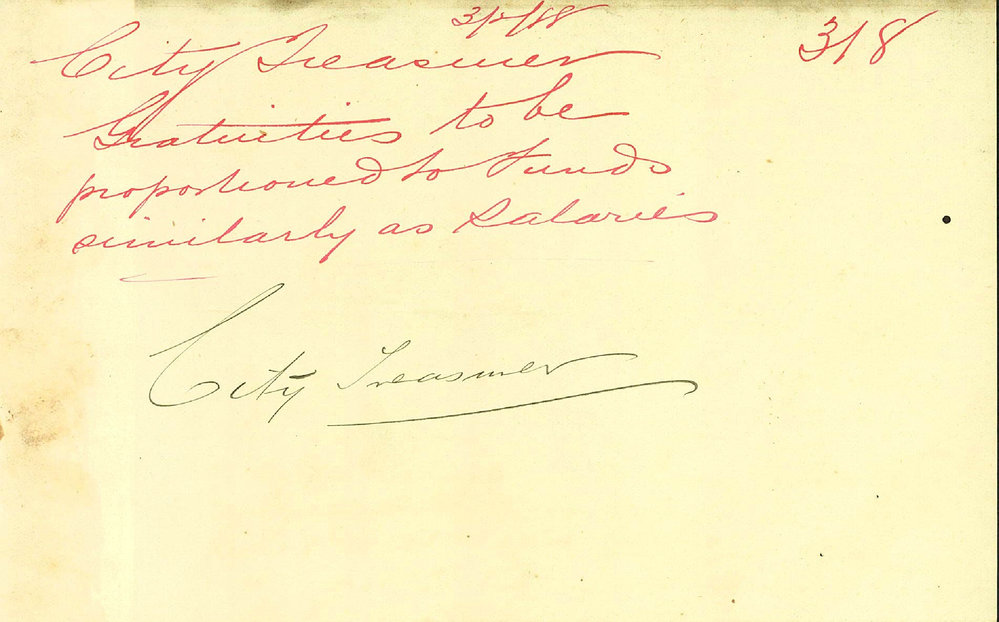 318
City Treasurer
Gratuities to be
proportioned to Funds
similarly as Salaries
City Treasurer